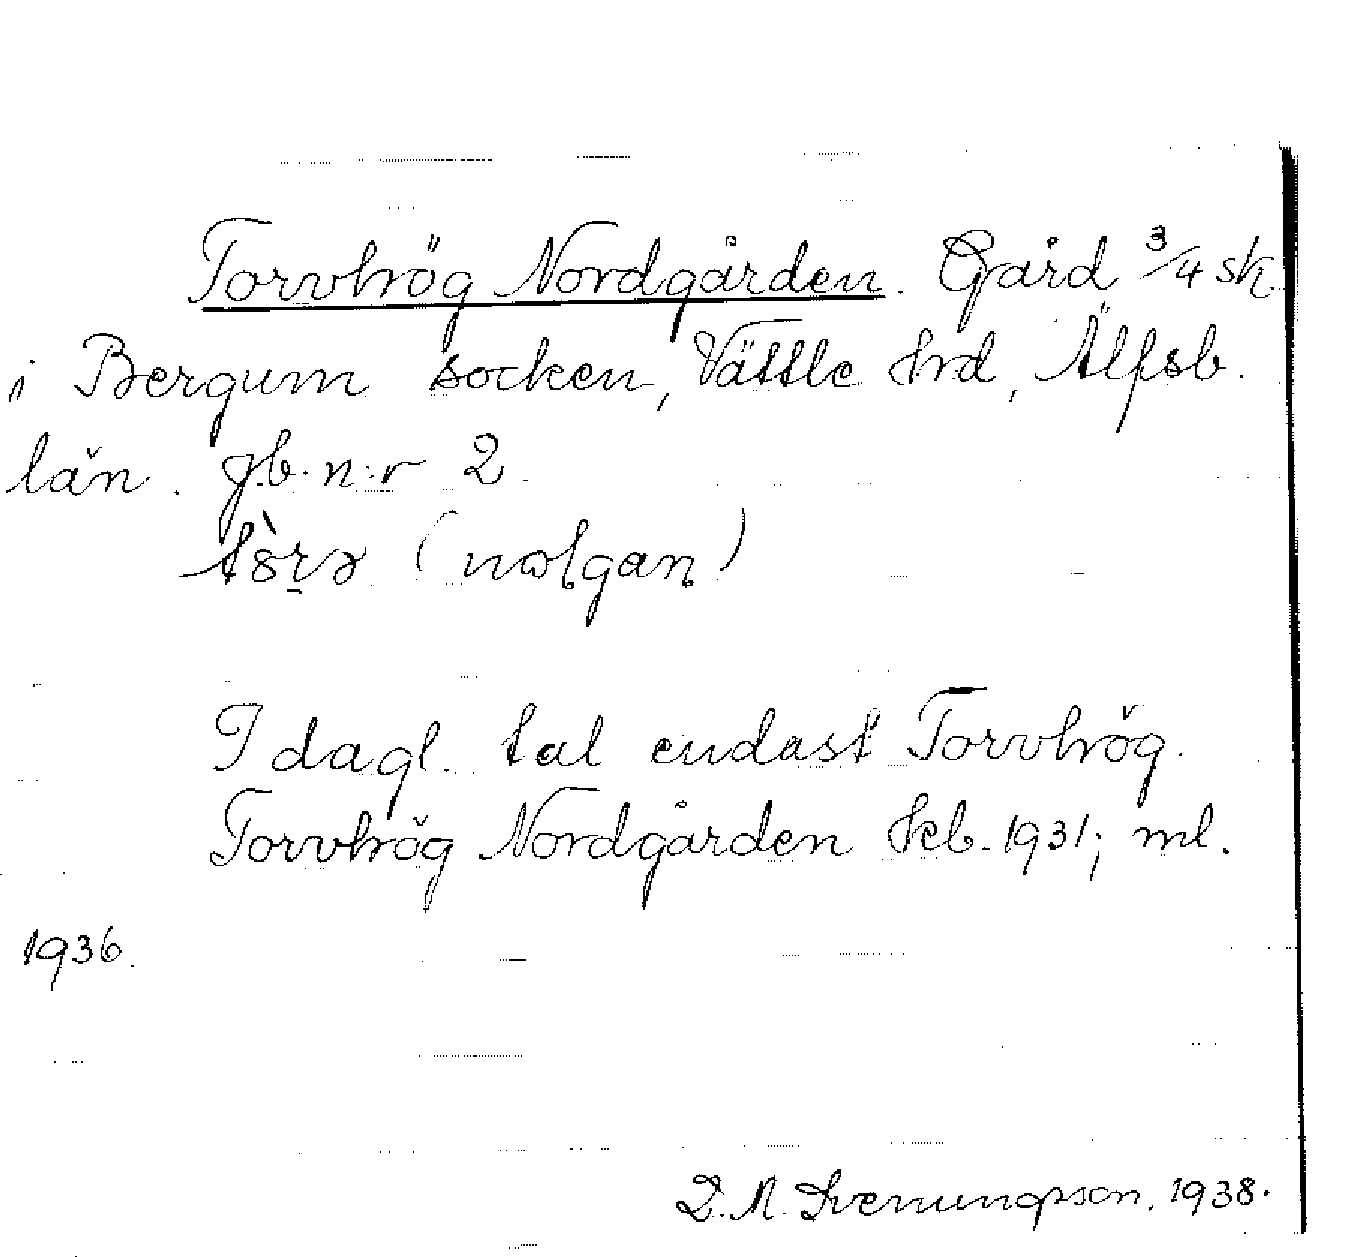 Torvhög Nordgården. Gård 3/4 sk.
i Bergum socken, Vättle hrd, Älfsb.
län. gb. n:r 2.
(nolgan)
I dagl. tal endast Torvhög.
Torvhög Nordgården Jeb. 1931; ml.
1936.
D. A. Svenungsson. 1938.